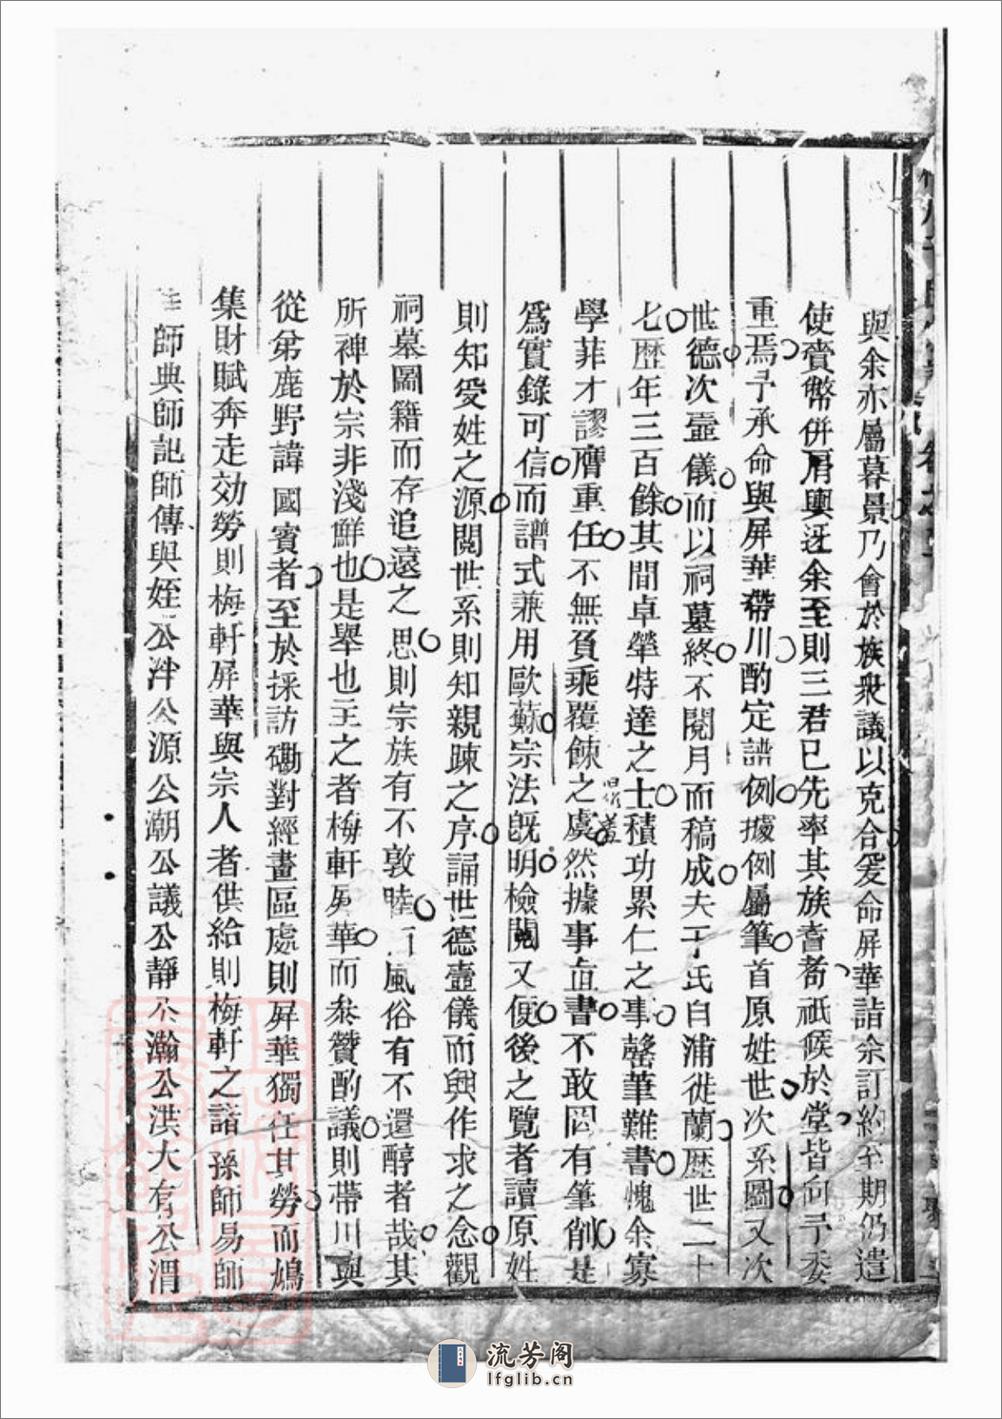 與余亦屬暮景乃會於族衆議以克合爰命屏華詣余訂約至期仍遣
使賫幣併肩輿迓余至則三君已先率其族耆耇祇候於堂皆向予委
重焉予承命與屏華帶川酌定譜例據例屬筆首原姓世次系圖又次
世德次壼儀而以祠墓終不閱月而稿成夫于氏自浦徙蘭歷世二十
七歷年三百餘其間卓犖特達之士積功累仁之事罄筆難書愧余寡
學菲才謬膺重任不無負乘覆餗之虞然據事直書不敢罔有筆削是
為實錄可信而譜式兼用歐蘇宗法旣明檢閱又便後之覽者讀原姓
則知受姓之源閱世系則知親踈之序誦世德壼儀而興作求之念觀
祠墓圖籍而存追遠之思則宗族有不敦睦而風俗有不還醇者哉其
所裨於宗非淺鮮也是舉也主之者梅軒屏華而叅贊酌議則帶川與
從弟鹿野諱國賓者至於採訪磡對經畫區處則屏華獨任其勞而鳩
集財賦奔走効勞則梅軒屏華與宗人者供給則梅軒之諳孫師易師
師典師訑師傳與姪公泮公源公潮公議公靜公瀚公洪大有公渭
流芳阁
lfglib.cn